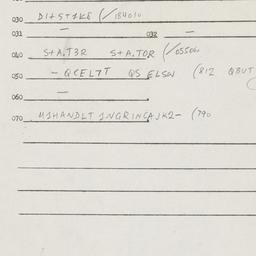 030 DI+ST1KE (/184010
031 — 032 —
040 S+A.T3R S+A.TOR (/055
050 — QCEL7T QS ELSW (812 QBUT
060 —
070 M1HANDLT 1NGRINCAJK2- (790